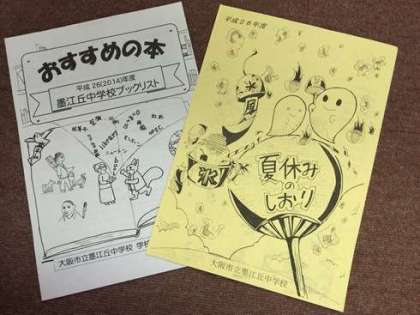 おすすめの本
平成26(2014)年度
墨江丘中学校ブックリスト
大阪市立墨江丘中学校 学校
平成26年度
氷
風
氷
夏休み
の
しおり
大阪市立墨江丘中学校